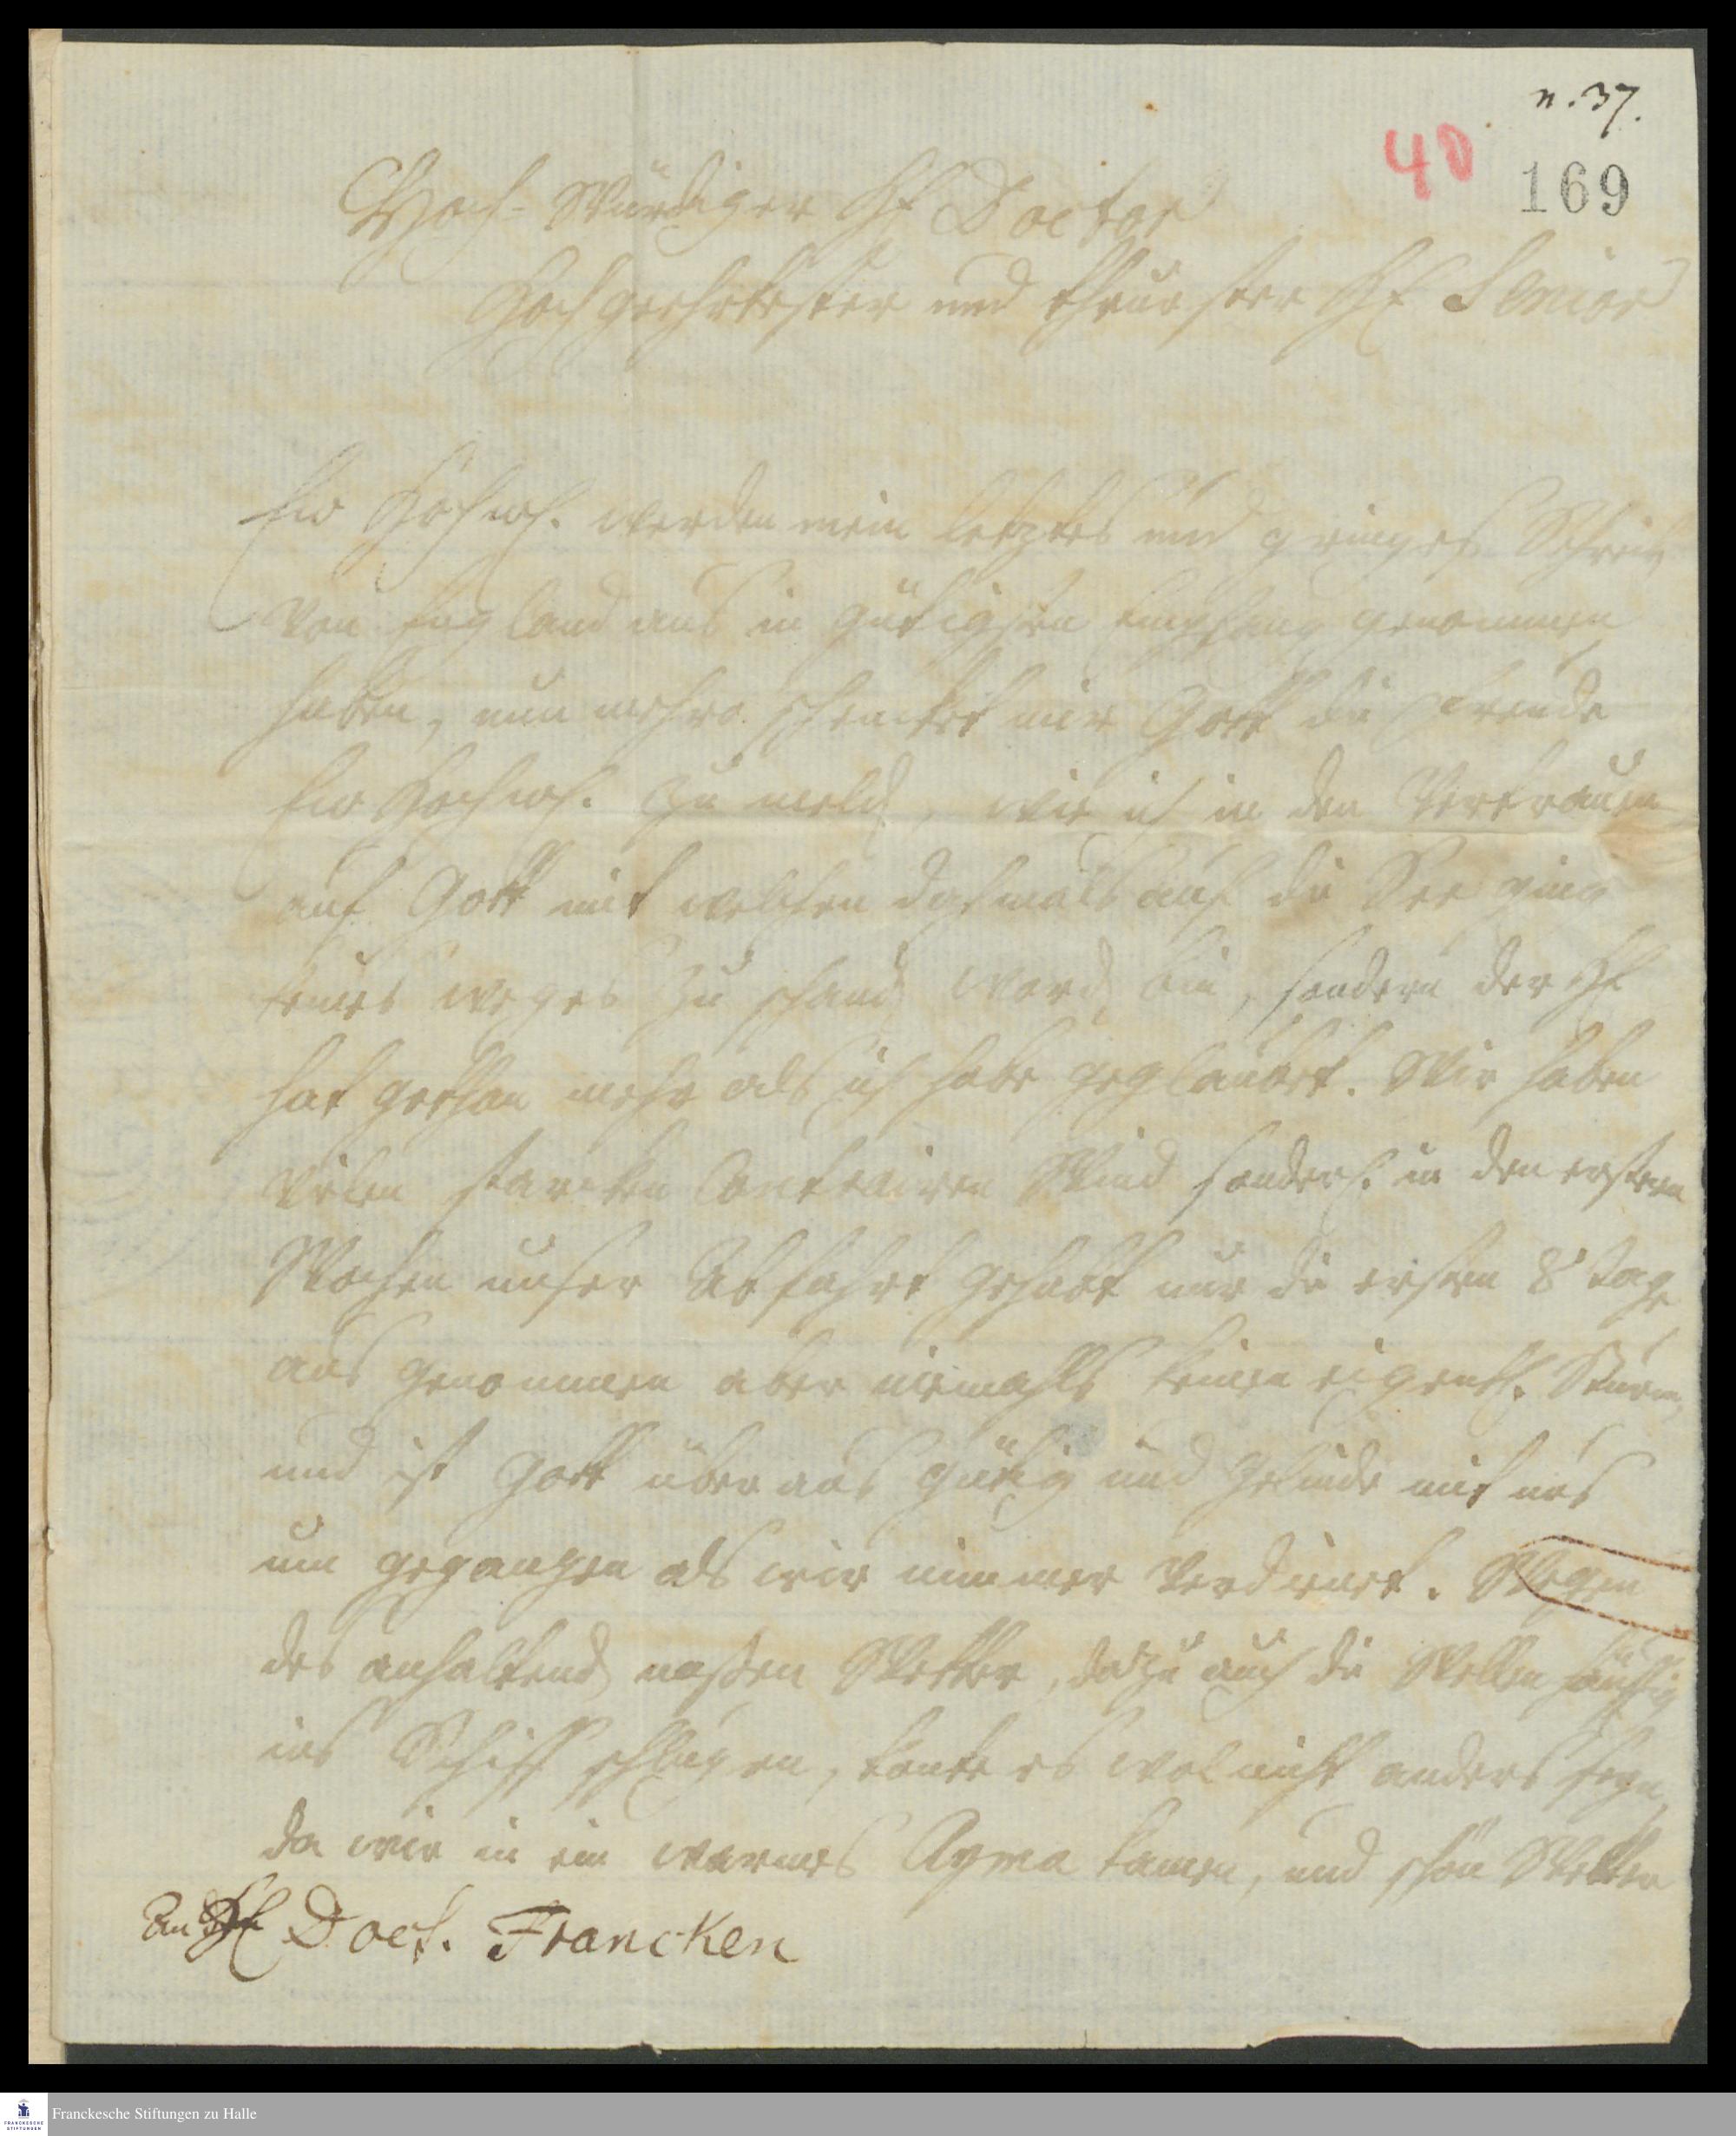 n. 37.
40
169
Hoch-Würdiger H Doctor
Hochgeehrtester und theurster H Senior
Ew Hochw. werden mein letztes und geringes Schreib
von Engeland aus in gütigsten Empfang genommen
haben, nun mehro schencket mir Gott die Freude
Ew Hochw. zu meld, wie ich in den Vertrauen
auf Gott mit welchen dahmals auf die See ging
keines weges zu schand word bin, sondern der H
hat gethan mehr als ich habe geglaubet. Wir haben
vielen starcken Contrairen Wind sonderl. in den ersten
Wochen unser Abfahrt gehabt nur die ersten 8 tage
aus genommen aber niemahls keinen eigentl. Sturm,
und ist Gott über aus gütig und gelinde mit uns
um gegangen als wir nimmer verdienet. Wegen
des anhaltend naßen Wetter, dazu auch die Wellen häuffig
ins Schiff schlugen, konte es wol nicht anders seyn,
da wir in ein warmes Clyma kamen, und schön Wetter
An H Doct. Francken
Franckesche Stiftungen zu Halle